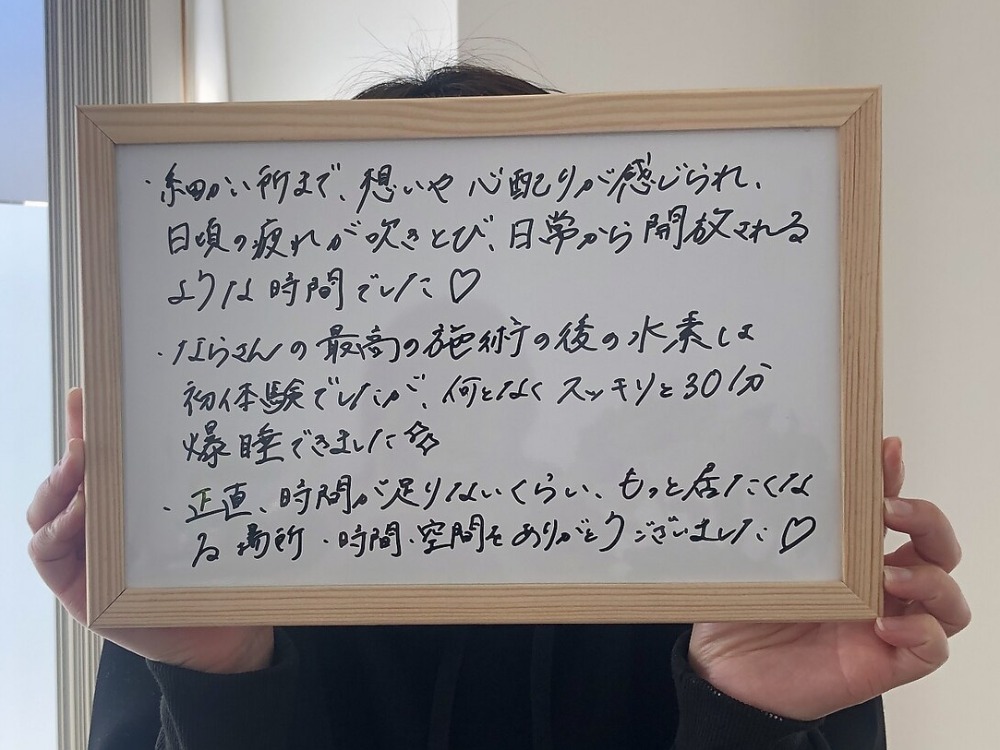 ・細かい所まで、想いや心配りが感じられ、
日頃の疲れが吹きとび、日常から開放される
ような時間でした♡
・ならさんの最高の施術の後の水素は
初体験でしたが、何となくスッキリと30分
爆睡できました☆
・正直、時間が足りないくらい、もっと居たくな
る場所・時間・空間をありがとうございました♡